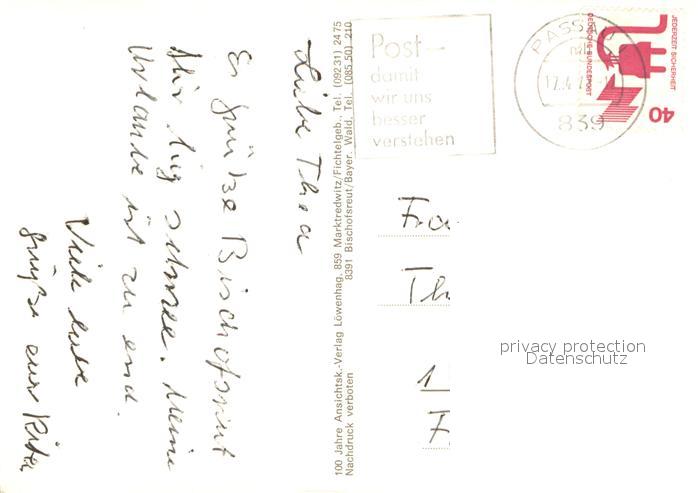 Liebe Thea
Es grüße Bischofsreut
Hir lig schnee. Meine
Urlaube ist zu end.
Viele liebe
grüße eur Rita
100 Jahre Ansichtsk.-Verlag Löwenhag, 859 Marktredwitz/Fichtelgeb., Tel. (09231) 2475
8391 Bischofsreut/Bayer. Wald, Tel. (08550) 210
Nachdruck verboten
Post -
damit
wir uns
besser
verstehen
PASSAU
839
JEDERZEIT SICHERHEIT
DEUTSCHE BUNDESPOST
40
Fra
Th
1
F
privacy protection
Datenschutz